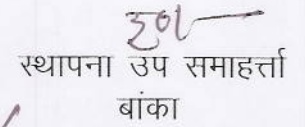 स्थापना उप समाहर्त्ता
बांका